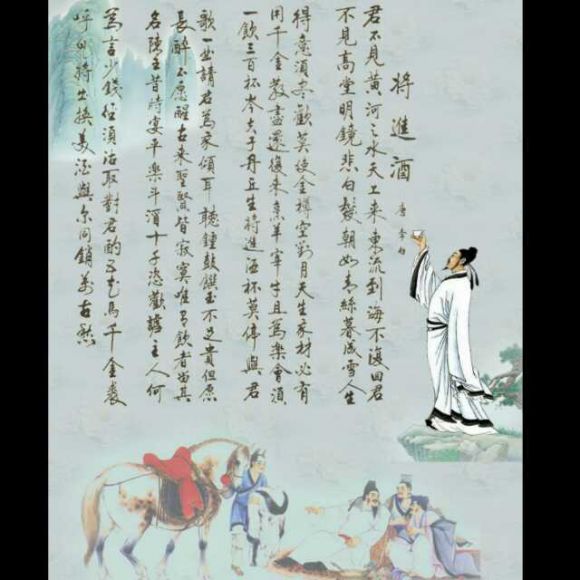 將進酒
唐 李白
君不見黃河之水天上來東流到海不復回君
不見高堂明鏡悲白髮朝如青絲暮成雪人生
得意須盡歡莫使金樽空對月天生我材必有
用千金散盡還復來烹羊宰牛且為樂會須
一飲三百杯岑夫子丹丘生將進酒杯莫停與君
歌一曲請君為我傾耳聽鐘鼓饌玉不足貴但愿
長醉不愿醒古來聖賢皆寂寞唯有飲者留其
名陳王昔時宴平樂斗酒十千恣歡謔主人何
為言少錢徑須沽取對君酌五花馬千金裘
呼兒將出換美酒與爾同銷萬古愁